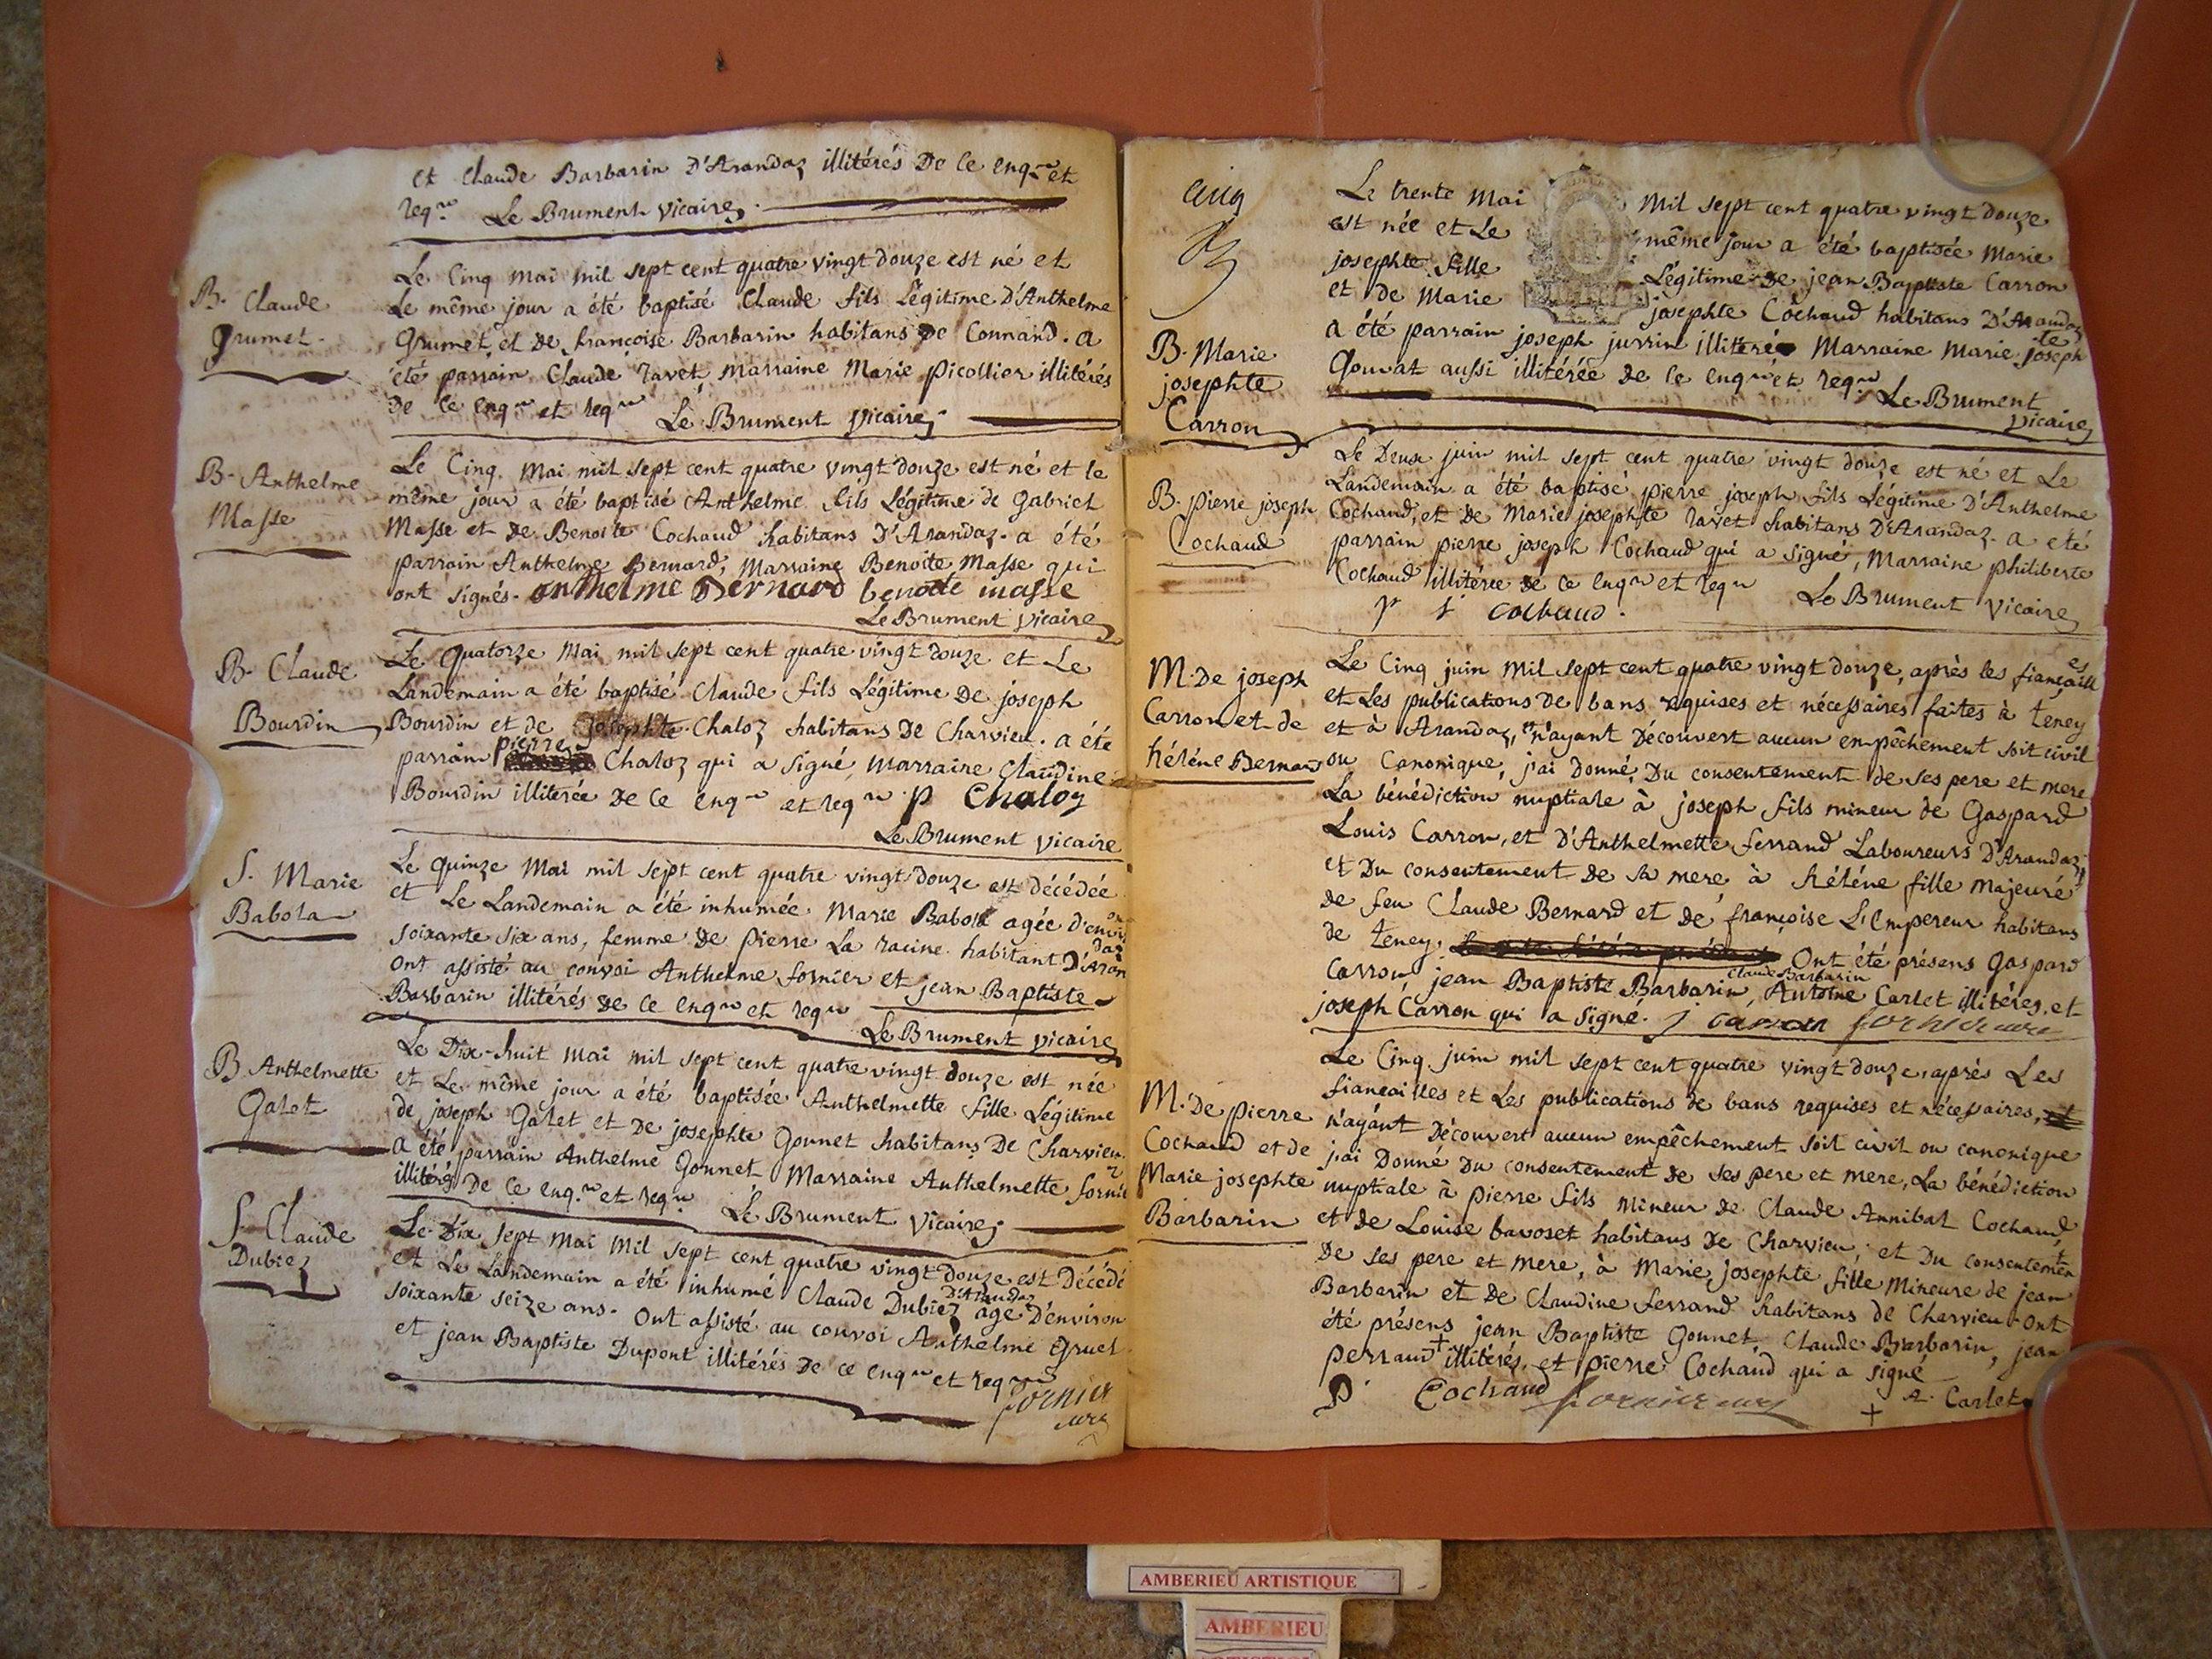 et Claude Barbarin D'Arandaz illitérés De ce enq.^is et
req.^is Le Brument vicaire
B. Claude
Grumet
Le Cinq mai mil sept cent quatre vingt douze est né et
Le même jour a été baptisé Claude fils Légitime D'Anthelme
Grumet, et De françoise Barbarin habitans De Connand. a
été parrain Claude Ravet, Marraine Marie picollier illitérés
De ce enq^is et req^is Le Brument vicaire
B. Anthelme
Masse
Le Cinq Mai mil sept cent quatre vingt douze est né et le
même jour a été baptisé Anthelme fils Légitime de Gabriel
Masse et de Benoite Cochaud habitans D'Arandaz. a été
parrain Anthelme Bernard, Marraine Benoite Masse qui
ont signés. anthelme Bernard benoite masse
Le Brument vicaire
B. Claude
Bourdin
Le Quatorze Mai mil sept cent quatre vingt douze et Le
Landemain a été baptisé Claude fils Légitime De joseph
Bourdin et de josephte Chaloz habitans De Charvieu. a été
parrain pierre Chaloz qui a signé, Marraine Claudine
Bourdin illiterée De ce enq^is et req^is p Chaloz
Le Brument vicaire
S. Marie
Babola
Le quinze Mai mil sept cent quatre vingt douze est décédée
et Le Landemain a été inhumée Marie Babola agée d'environ
soixante six ans, femme De pierre La racine habitant D'Arandaz
ont assisté au convoi Anthelme fornier et jean Baptiste
Barbarin illitérés de ce enq^is et req^is
Le Brument vicaire
B. Anthelmette
Galet
Le Dix-huit Mai mil sept cent quatre vingt douze est née
et Le même jour a été baptisée Anthelmette fille Légitime
de joseph Galet et De josephte Gonnet habitans De Charvieu.
a été parrain Anthelme Gonnet Marraine Anthelmette fornier
illitérés De ce enq.^is et req^is Le Brument vicaire
S. Claude
Dubiez
Le Dix sept Mai Mil sept cent quatre vingt douze est Décédé
et Le Landemain a été inhumé Claude Dubiez D'Arandaz agé D'environ
soixante seize ans. Ont assisté au convoi Anthelme Gruet
et jean Baptiste Dupont illitérés De ce enq^is et req^is
fornier
curé
cinq
Le trente Mai Mil sept cent quatre vingt douze
est née et Le même jour a été baptisée Marie
josephte fille Légitime de jean Baptiste Carron
et de Marie josephte Cochaud habitans D'Arandaz
B. Marie
josephte
Carron
a été parrain joseph jurrin illitéré Marraine Marie josephte
Gourat aussi illitérée De ce enq^is et req^is
Le Brument
vicaire
B. pierre joseph
Cochaud
Le Deux juin mil sept cent quatre vingt douze est né et Le
Landemain a été baptisé pierre joseph fils Légitime D'Anthelme
Cochaud, et De Marie josephte Ravet habitans D'Arandaz. a été
parrain pierre joseph Cochaud qui a signé, Marraine philiberte
Cochaud illitérée de ce enq^is et req^is Le Brument vicaire
p j cochaud.
M. De joseph
Carron et de
héléne Bernard
Le Cinq juin Mil sept cent quatre vingt douze, après les fiançailles
et Les publications De bans requises et nécessaires faites à teney
et à Arandaz, et n'ayant Découvert aucun empêchement soit civil
ou Canonique, j'ai Donné, Du consentement de ses pere et mere
La bénédiction nuptiale à joseph fils mineur de Gaspard
Louis Carron, et D'Anthelmette ferrand Laboureurs D'Arandaz;
et Du consentement De sa mere à héléne fille Majeure
de feu Claude Bernard et de françoise L'Empereur habitans
de teney. Ont été présens Gaspard
Carron, jean Baptiste Barbarin, Claude Barbarin Antoine Carlet illitérés, et
joseph Carron qui a signé. j caron fornier curé
M. De pierre
Cochaud et de
Marie josephte
Barbarin
Le Cinq juin mil sept cent quatre vingt douze, après Les
fiancailles et Les publications de bans requises et nécessaires, et
n'ayant Découvert aucun empêchement soit civil ou canonique
j'ai Donné Du consentement De ses pere et mere, La bénédiction
nuptiale à pierre fils Mineur de Claude Annibal Cochaud,
et de Louise bavoset habitans De Charvieu; et Du consentement
De ses pere et mere, à Marie josephte fille Mineure de jean
Barbarin et De Claudine ferrand habitans de Charvieu. Ont
été présens jean Baptiste Gonnet, Claude Barbarin, jean
perraud + illitérés, et pierre Cochaud qui a signé
p. Cochaud fornier curé + A. Carlet
AMBERIEU ARTISTIQUE
AMBERIEU